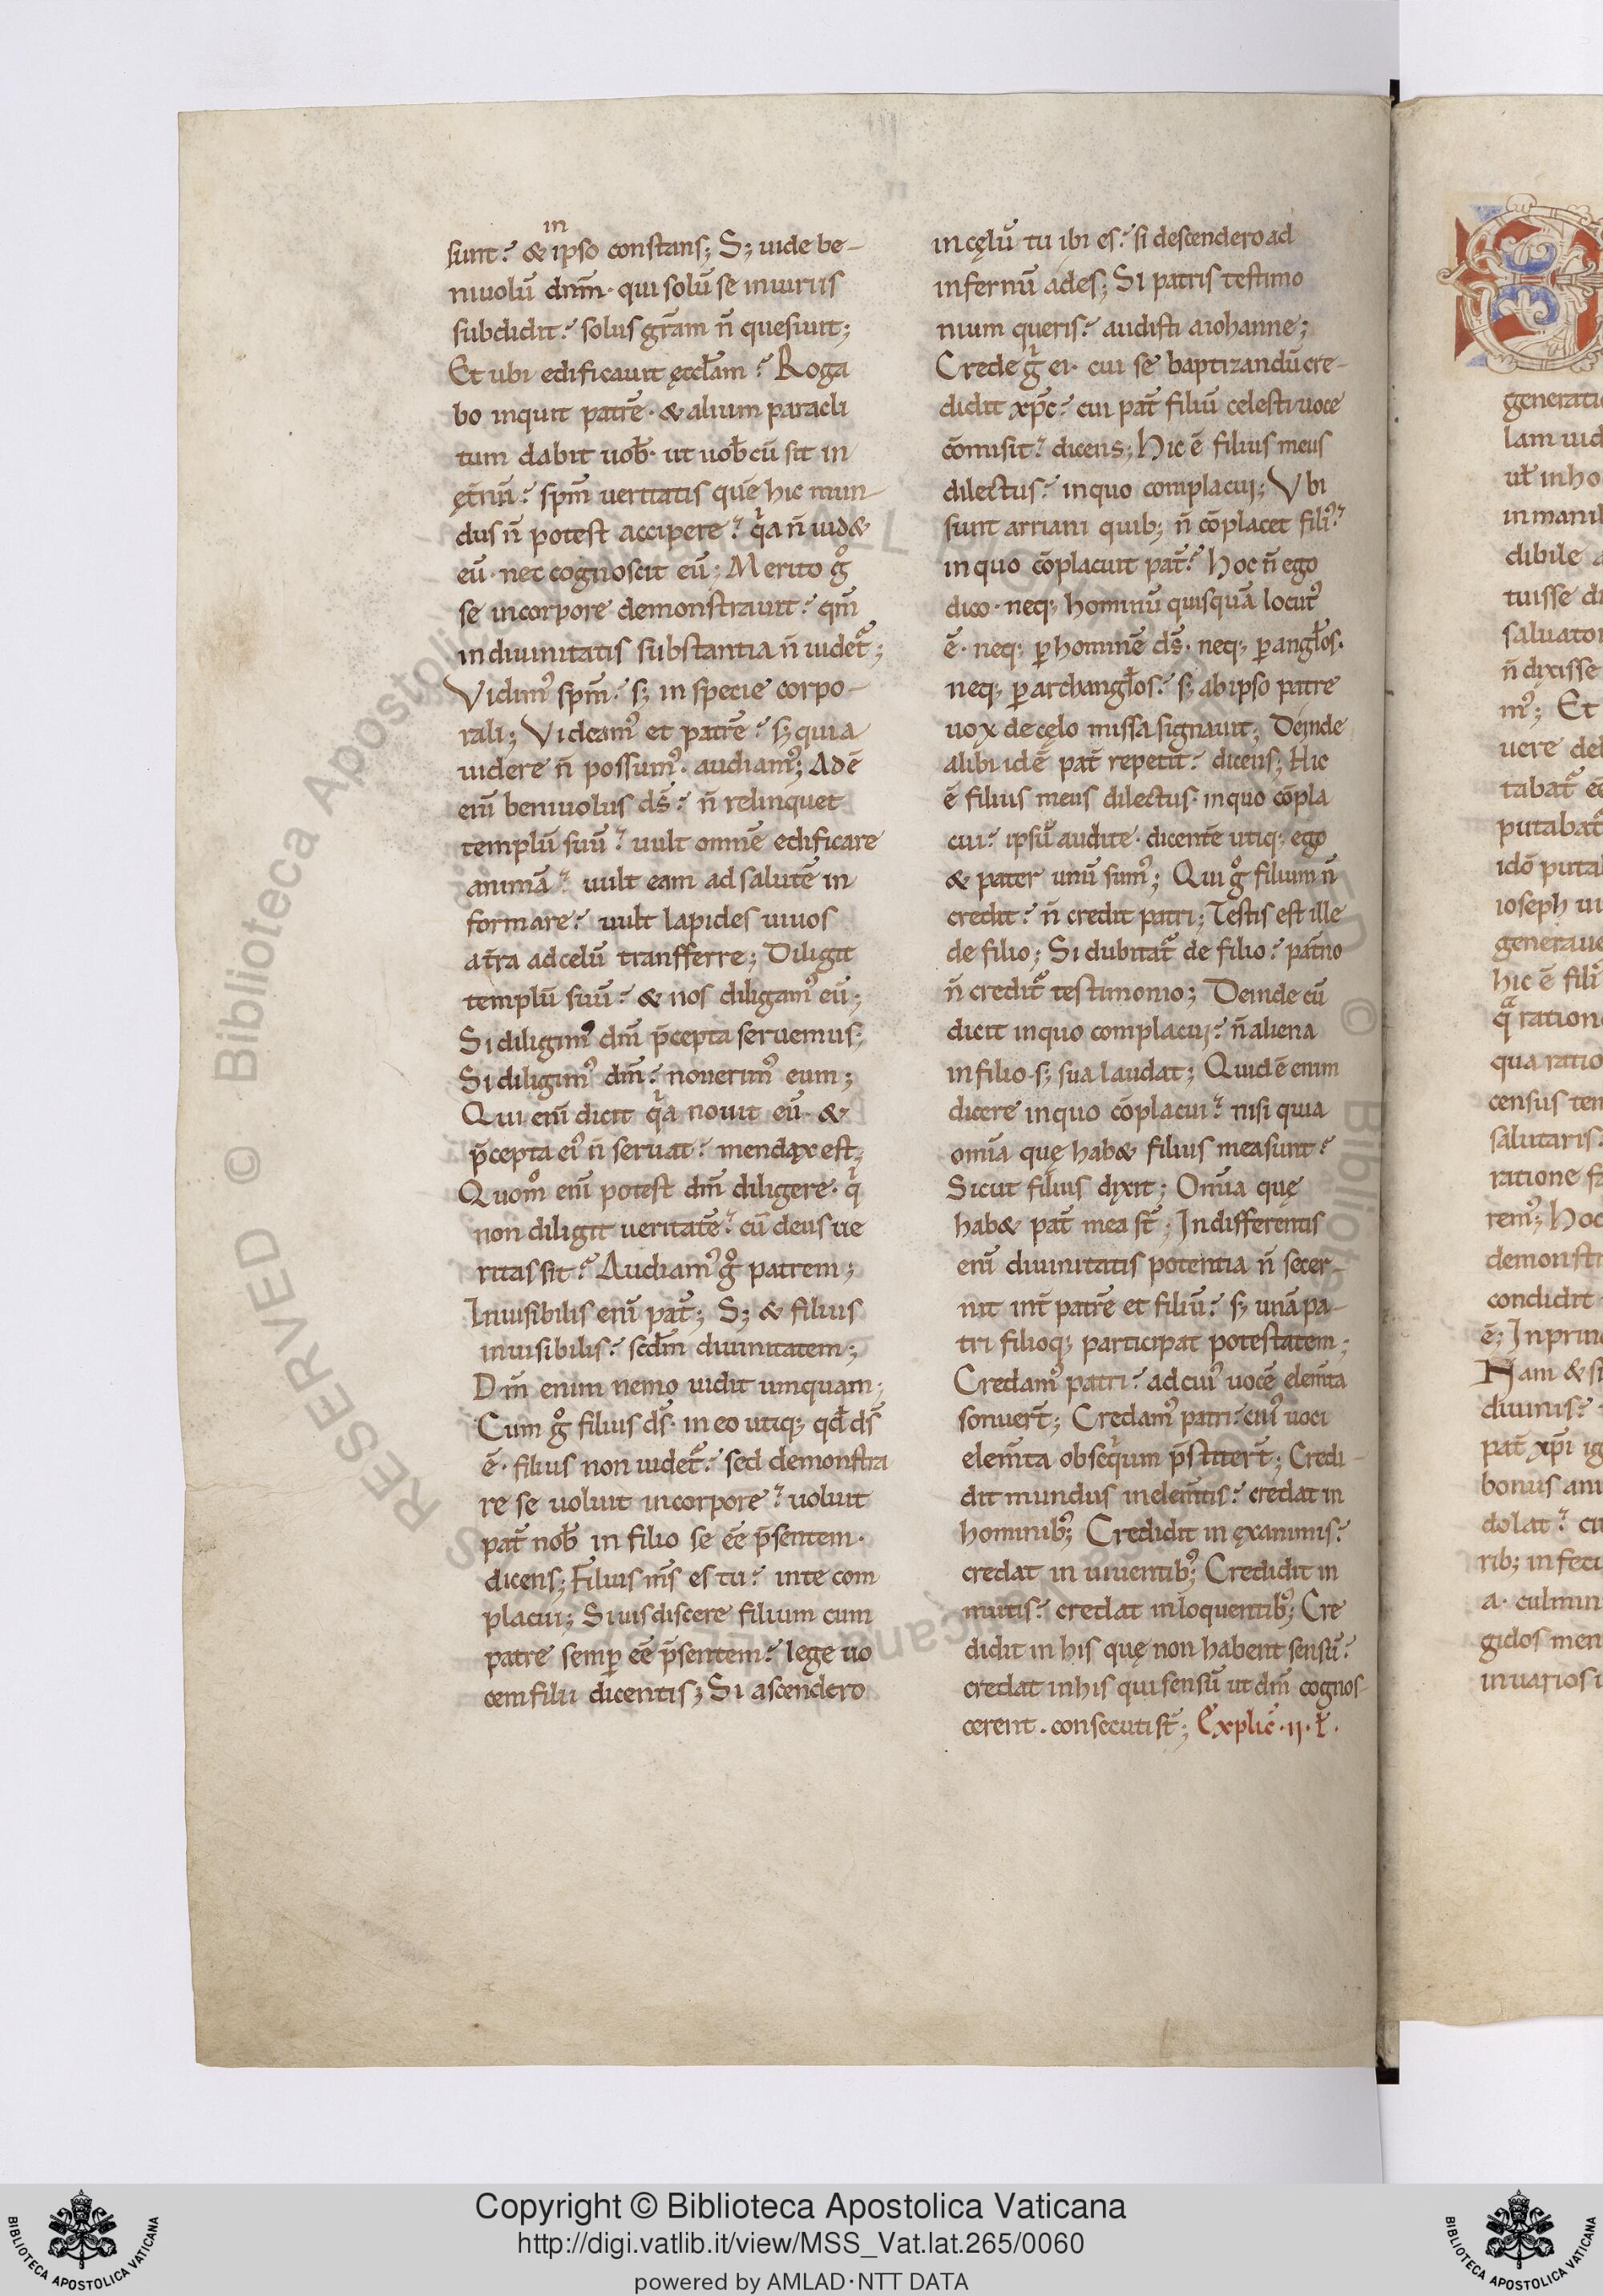 in
sunt? & ipso constans; S; uide be-
niuolū dnm̄· qui solū se iniuriis
subdidit? solus gr̄am n̄ quesiuit;
Et ubi edificauit ęccl̄am? Roga
bo inquit patrē· & alium paracli
tum dabit uob̄· ut uob̄cū sit in
ęt̄nū? sp̄m ueritatis quē hic mun-
dus n̄ potest accipere? qͥa n̄ uid&
eū· nec cognoscit eū; Merito gͦ
se incorpore demonstrauit? qm̄
indiuinitatis substantia n̄ uidet᷑;
Vidimꝰ sp̄m? s; in specie corpo-
rali; Videamꝰ et patrē? s; quia
uidere n̄ possumꝰ· audiamꝰ; Adē
eni̅ beniuolus ds̄? n̄ relinquet
templū suū? uult omnē edificare
animā? uult eam ad salutē in
formare? uult lapides uiuos
at̄ra adcelū transfferre; Diligit
templū suū? & nos diligamꝰ eū;
Si diligimꝰ dm̄ p̄cepta seruemus;
Si diligimꝰ dm̄? nouerimꝰ eum;
Qui eni̅ dicit qͥa nouit eū· &
p̄cepta eiꝰ n̄ seruat? mendax est;
Quomͦ eni̅ potest dm̄ diligere· qͥ
non diligit ueritatē? cū deus ue
ritas sit? Audiamꝰ gͦ patrem;
Inuisibilis eni̅ pat̄; S; & filius
inuisibilis? scd̄m diuinitatem;
Dm̄ enim nemo uidit umquam;
Cum gͦ filius ds̄· in eo utiq; qd̄ ds̄
ē· filius non uidet᷑? sed demonstra
re se uoluit incorpore? uoluit
pat̄ nob̄ in filio se ēē p̄sentem·
dicens; Filius ms̄ es tu? inte com
placui; Siuis discere filium cum
patre semꝑ ēē p̄sentem? lege uo
cem filii dicentis; Si ascendero
in cęlū tu ibi es? si descendero ad
infernū ades; Si patris testimo
nium queris? audisti aiohanne;
Crede gͥ ei· cui se baptizandū cre-
didit xp̄c? cui pat̄ filiū celesti uoce
cōmisit? dicens; Hic ē filius meus
dilectus? inquo complacui; Vbi
sunt arriani quib; n̄ cōplacet filiꝰ?
inquo cōplacuit pat̄? hoc n̄ ego
dico· neq; hominū quisquā locutꝰ
ē· neq; ꝑ hominē ds̄· neq; ꝑ angl̄os·
neq; ꝑ archangl̄os? s; ab ipso patre
uox de cęlo missa signauit; Deinde
alibi idē pat̄ repetit? dicens; Hic
ē filius meus dilectus· inquo cōpla
cui? ipsū audite· dicentē utiq; ego
& pater unū sumꝰ; Qui gͦ filium n̄
credit? n̄ credit patri; Testis est ille
de filio; Si dubitat᷑ de filio? pat̄no
n̄ credit᷑ testimonio; Deinde cū
dicit inquo complacui? n̄ aliena
in filio· s; sua laudat; Quid ē enim
dicere inquo cōplacui? nisi quia
omīa quę hab& filius mea sunt?
Sicut filius dixit; Omīa quę
hab& pat̄ mea st̄; Indifferentis
eni̅ diuinitatis potentia n̄ secer-
nit int̄ patrē et filiū? s; unā pa-
tri filioq; participat potestatem;
Credamꝰ patri? ad cuiꝰ uocē elem̄ta
sonuer̄t; Credamꝰ patri? cuiꝰ uoci
elem̄ta obseqͥum p̄stiter̄t; Credi-
dit mundus inelem̄tis? credat in
hominibꝰ; Credidit in ęxanimis?
credat in uiuentibꝰ; Credidit in
mutis? credat inloquentibꝰ; Cre
didit in his quę non habent sensū?
credat inhis qui sensū ut dm̄ cognos-
cerent· consecuti st̄; Explic̄·ii·ł·
generati
lam uid
ul̄ inho
in mani
dibile a
tuisse di
saluator
n̄ dixisse
mꝰ; Et
uere de
tabat᷑ ēē
putabat᷑
idō puta
ioseph ui
generaue
hic ē filiꝰ
qͣ ration
qua ratio
census ten
salutaris
ratione f
remꝰ; hoc
demonstr
condidit
ē; Inprin
Nam & si
diuinis?
pat̄ xp̄i ig
bonus am
dolat? cu
rib; infecu
a· culmin
gidos men
inuarios
Copyright © Biblioteca Apostolica Vaticana
http://digi.vatlib.it/view/MSS_Vat.lat.265/0060
powered by AMLAD·NTT DATA
BIBLIOTECA APOSTOLICA VATICANA
BIBLIOTECA APOSTOLICA VATICANA